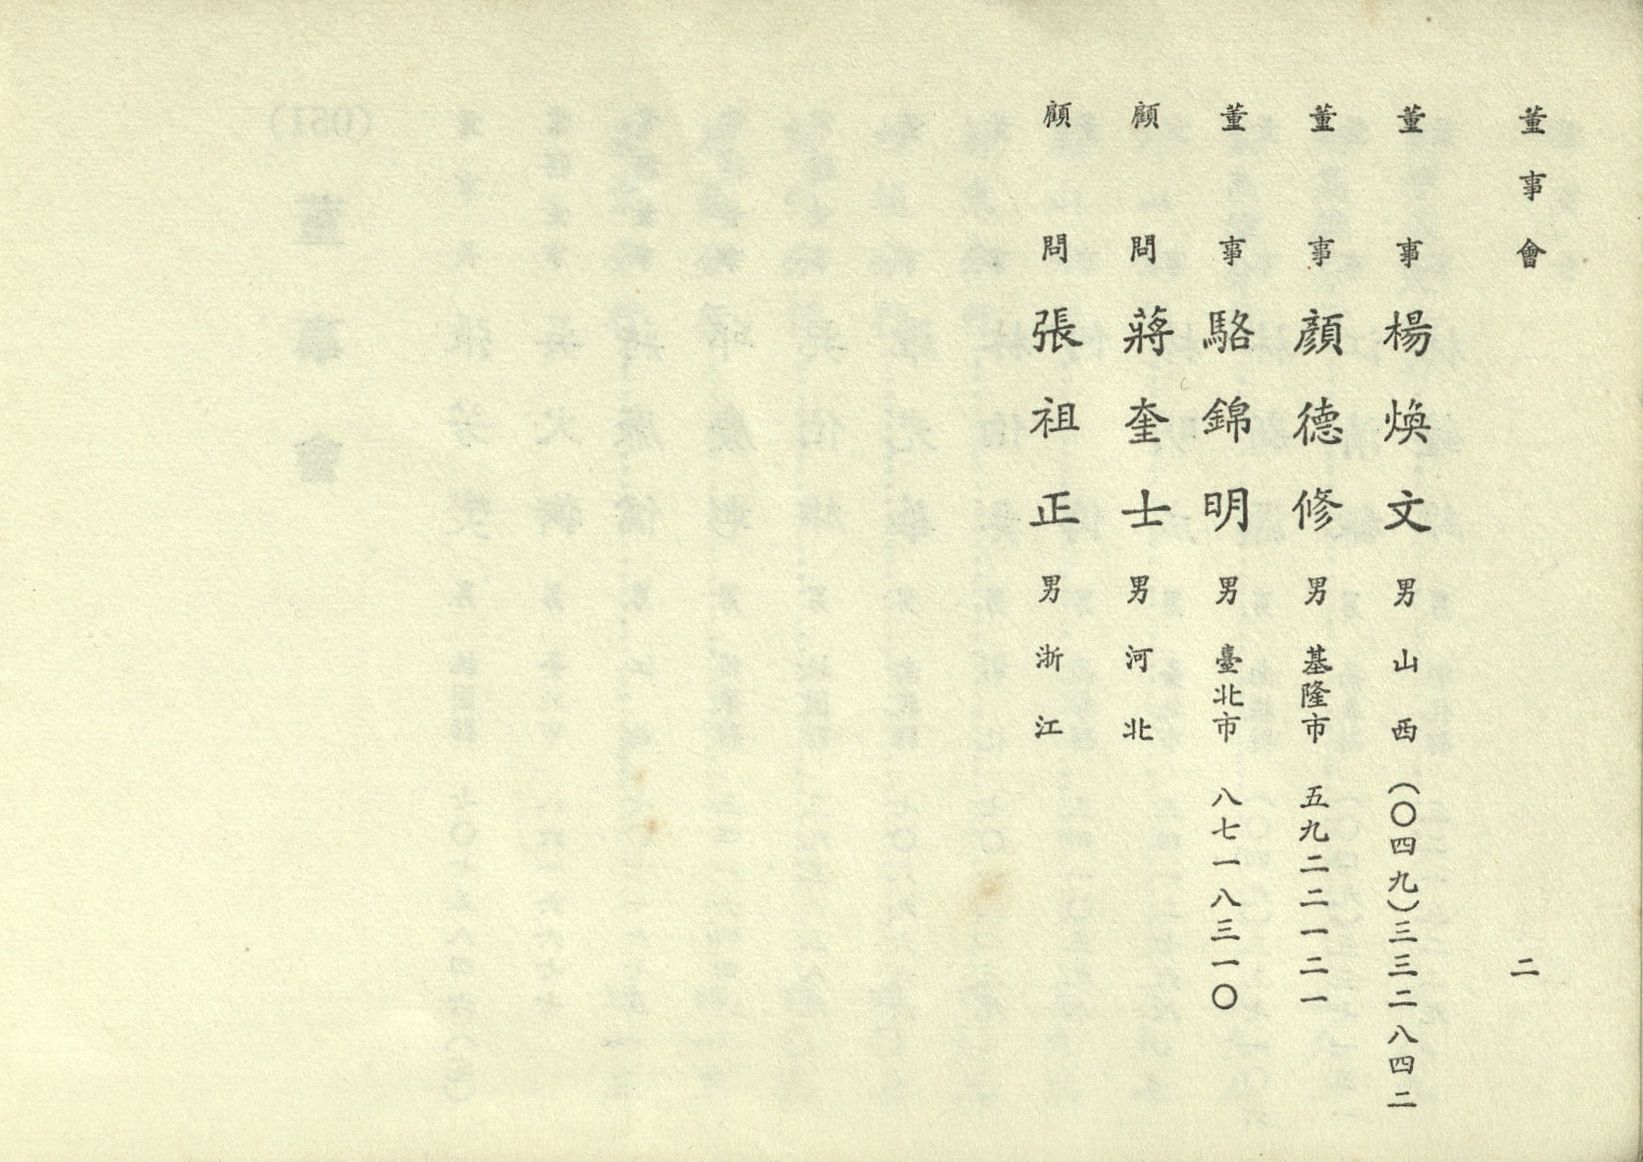 董事會 二
董事 楊煥文 男 山西 (〇四九)三三二八四二
董事 顏德修 男 基隆市 五九二二一二一
董事 駱錦明 男 臺北市 八七一八三一〇
顧問 蔣奎士 男 河北
顧問 張祖正 男 浙江